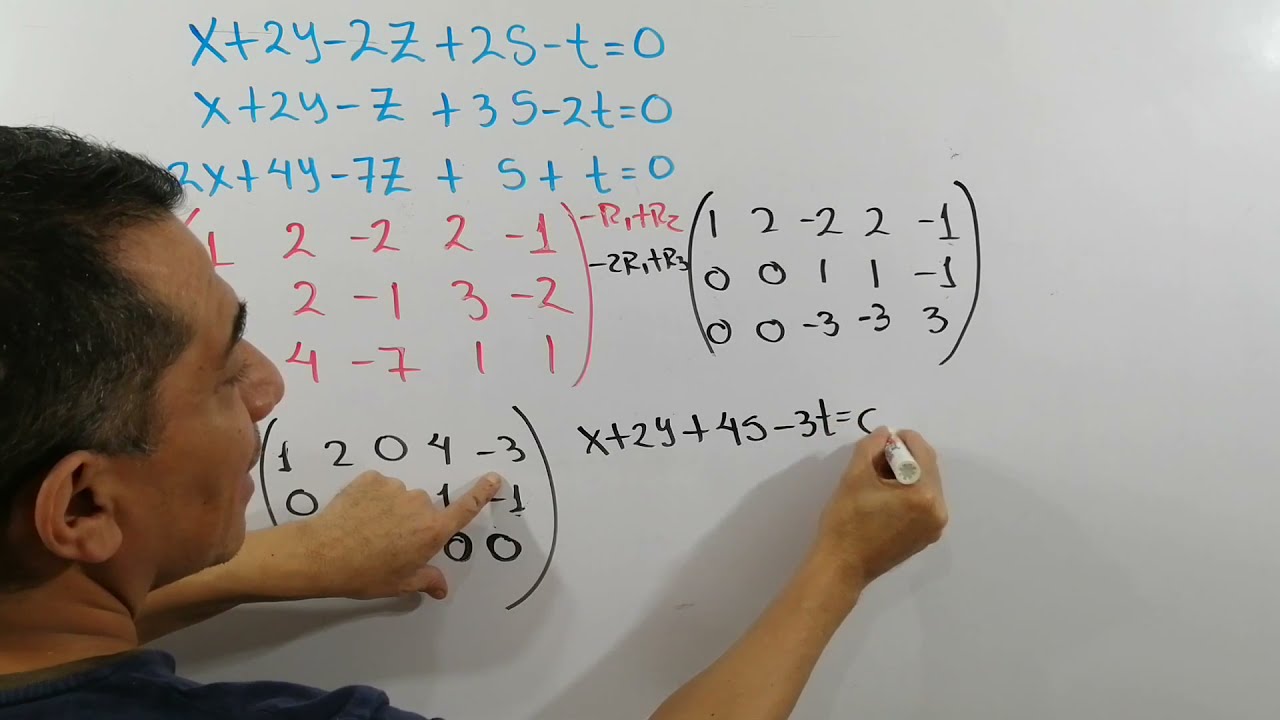 x+2y-2z+2s-t=0
x+2y-z+3s-2t=0
2x+4y-7z+s+t=0
1 2 -2 2 -1
2 -1 3 -2
4 -7 1 1
-R₁+R₂
-2R₁+R₃
1 2 -2 2 -1
0 0 1 1 -1
0 0 -3 -3 3
1 2 0 4 -3
0 1 -1
0 0
x+2y+4s-3t=